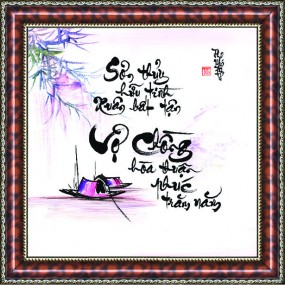 Sơn thủy
hữu tình
Xuân bất tận
Vợ chồng
hòa thuận
phúc
trăm năm